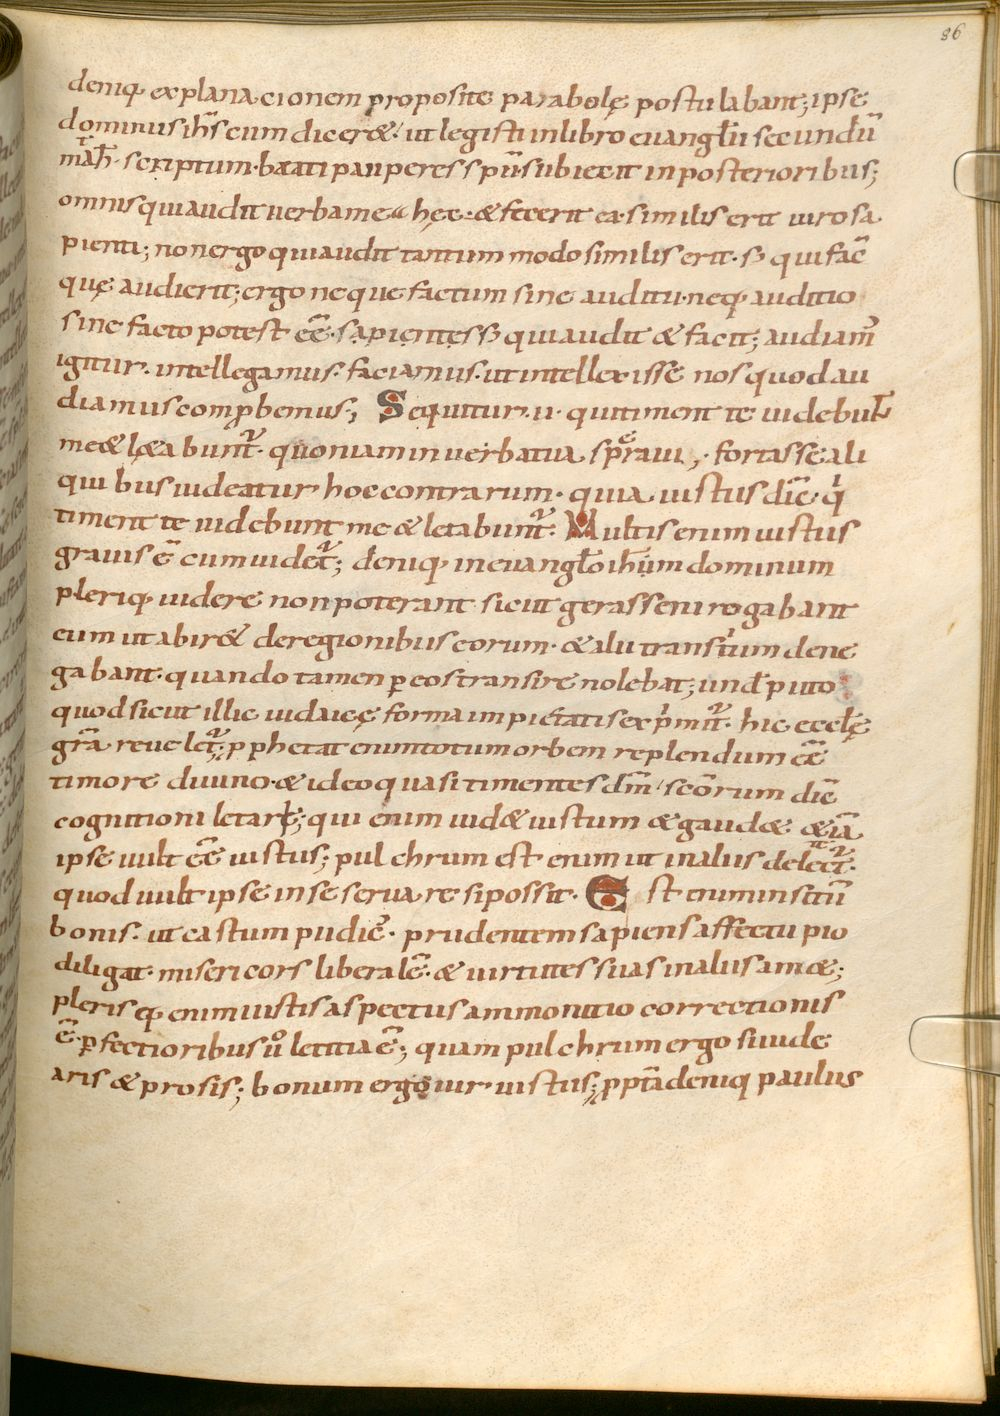 86
deniq; explanacionem proposite parabolę postulabant; ipse
dominus ih̅s cum dicer&. ut legisti in libro euangl̅ii secundu̅
math̅. scriptum. beati pauperes sp̅u. subiecit in posterioribus;
omnis qui audit uerba mea hęc. & fecerit ea. similis erit uiro sa
pienti; non ergo qui audit tantum modo similis erit. s; qui fac̅
quę audierit; ergo neque factum sine auditu. neq; auditio
sine facto potest ee̅. sapiens est s; qui audit & facit; audiam᷒
igitur. intellegamus. faciamus. ut intellexisse nos quod au
diamus comp̱bemus; Sequitur. ii. qui timent te uidebun̅t
me & lętabunt᷒. quoniam in uerba tua speraui; fortasse ali
quibus uideatur hoc contrarium. quia iustus dic̅. qͥ
timent te uidebunt me & letabunt᷒. Multis enim iustus
grauis e̅ cum uidet᷒; deniq; in euangl̅o ih̅um dominum
pleriq; uidere non poterant sicut gerasseni rogabant
eum ut abir& de regionibus eorum. & alii transitum dene
gabant. quando tamen ꝑ eos transire nolebat; und̅ puto
quod sicut illic iudaicę forma impi&atis exp̍mit᷒. hic eccl̅ę
gr̅a reuelet᷒; ꝓphetat enim totum orbem replendum ee̅
timore diuino. & ideo quasi timentes dm̅ sc̅orum dic̅
cognitioni letar&; qui enim uid& iustum & gaud& &ia̅
ipse uult ee̅ iustus; pulchrum est enim ut in aliis delect&᷒.
quod uult ipse in se seruare si possit. Est enim insitu̅
bonis. ut castum pudic᷒. prudentem sapiens affectu pio
diligat. misericors liberale̅. & uirtutes suas in aliis am&;
plerisq; enim iustis aspectus ammonitio correctionis
e̅. ꝑfectioribus uͦ letitia e̅; quam pulchrum ergo si uide
aris & prosis; bonum ergo uir iustus; ꝓpt̅a deniq; paulus